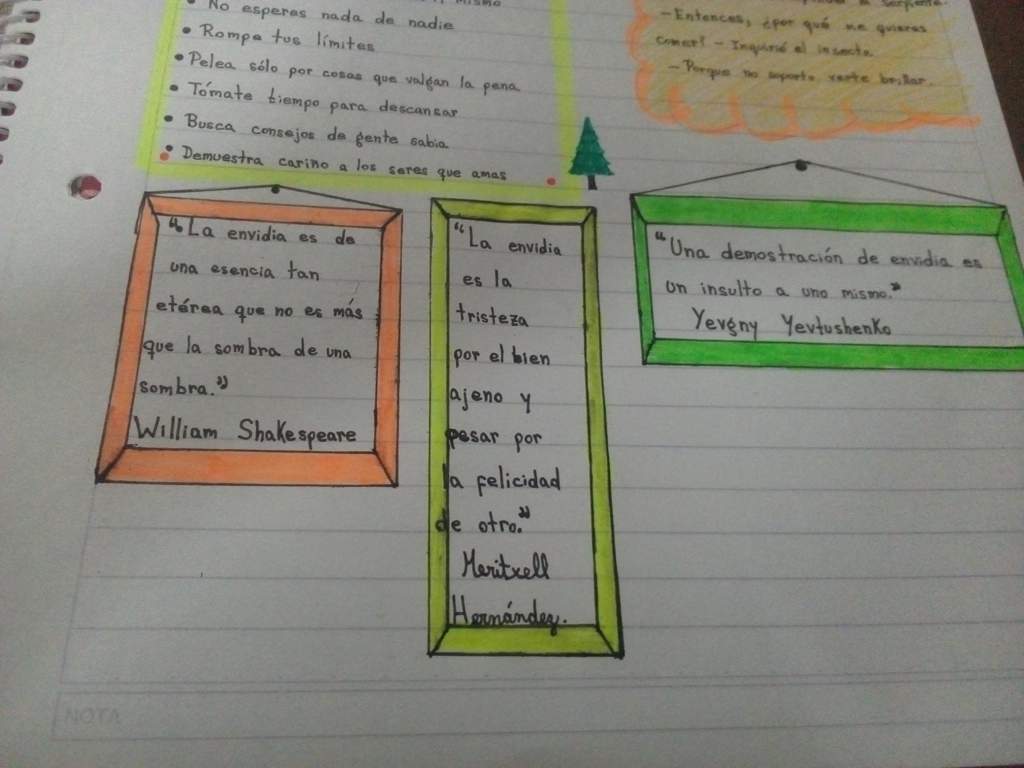 mismo
• No esperes nada de nadie
• Rompe tus límites
• Pelea sólo por cosas que valgan la pena
• Tómate tiempo para descansar
• Busca consejos de gente sabia
• Demuestra carino a los seres que amas
la serpiente.
-Entences, ¿por qué me quieres
comer? - Inquirió el insecto.
-Porque no soporto verte brillar.
"La envidia es de
una esencia tan
etérea que no es más
que la sombra de una
sombra."
William Shakespeare
"La envidia
es la
tristeza
por el bien
ajeno y
pesar por
la felicidad
de otro."
Meritxell
Hernández.
"Una demostración de envidia es
un insulto a uno mismo."
Yevgny Yevtushenko
NOTA